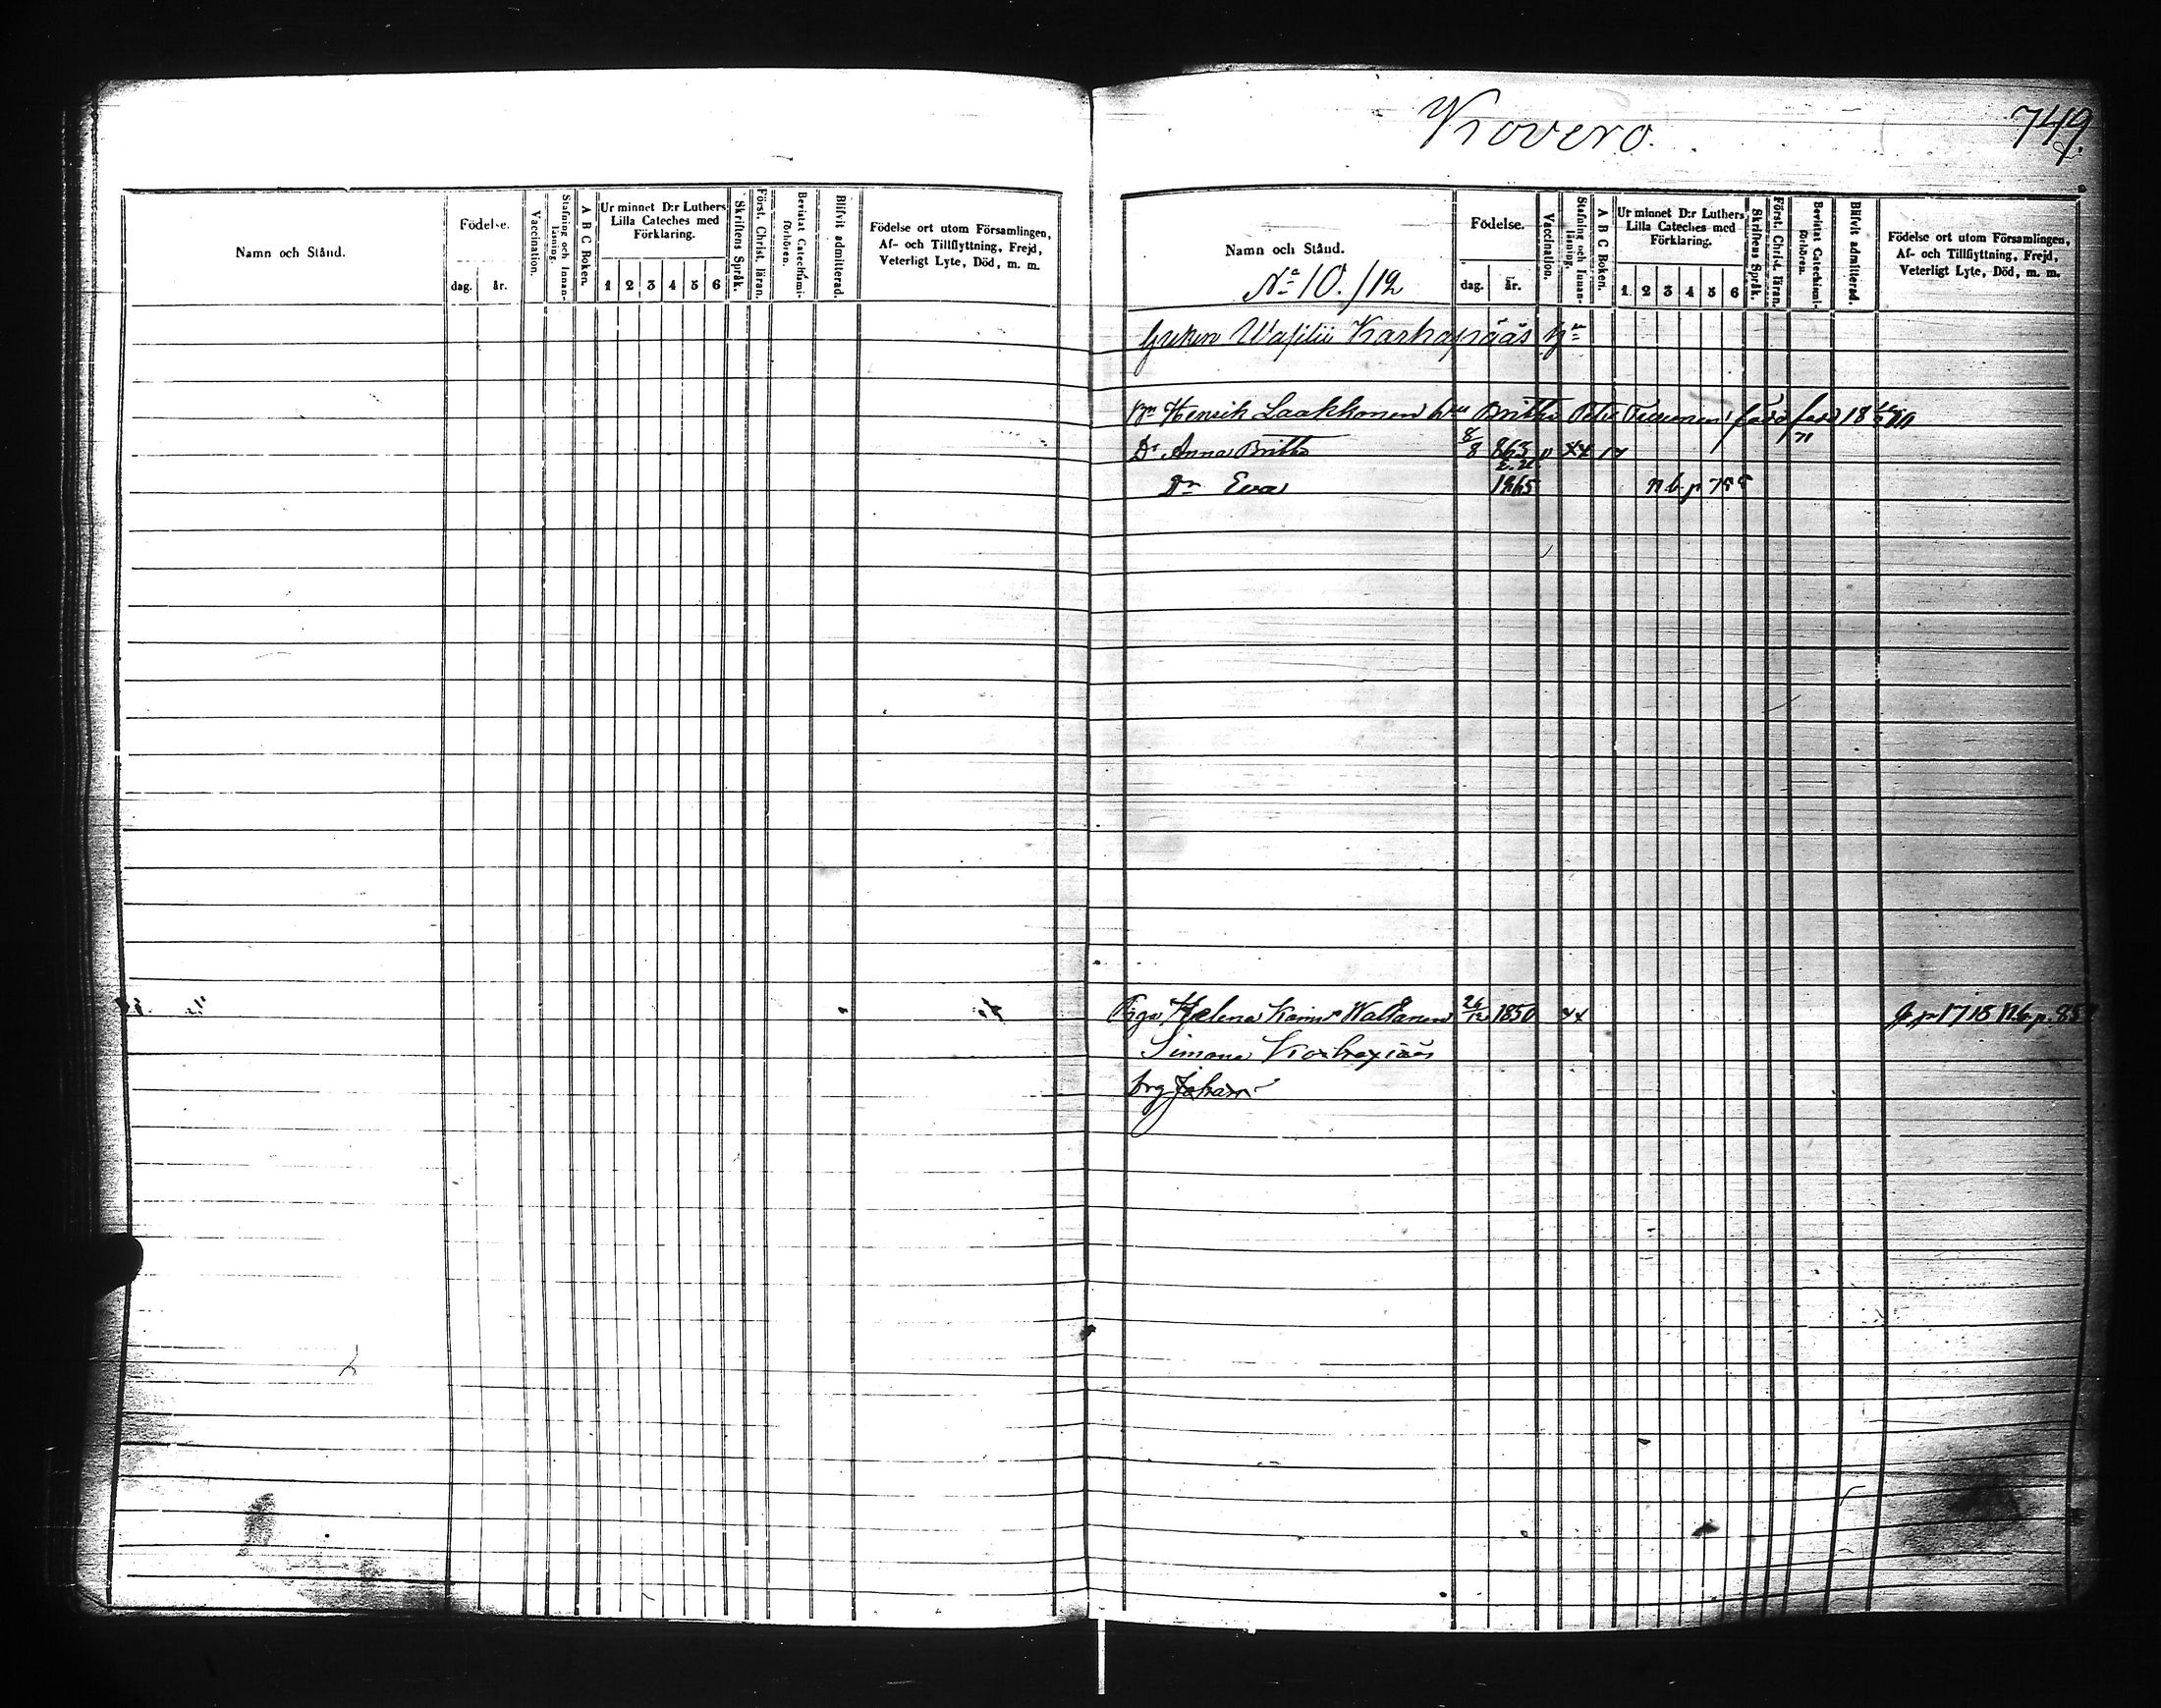 Kovero.
749.
Namn och Stånd.
Födelse.
dag. år.
Vaccination.
Stafning och Innanläsning.
A B C Boken.
Ur minnet D:r Luthers Lilla Cateches med Förklaring.
1 2 3 4 5 6
Skriftens Språk.
Först. Christ. läran.
Bevistat Catechismiförhören.
Blifvit admitterad.
Födelse ort utom Församlingen, Af- och Tillflyttning, Frejd, Veterligt Lyte, Död, m. m.
Namn och Stånd.
No 10./12
Födelse.
dag. år.
Vaccination.
Stafning och Innanläsning.
A B C Boken.
Ur minnet D:r Luthers Lilla Cateches med Förklaring.
1 2 3 4 5 6
Skriftens Språk.
Först. Christ. läran.
Bevistat Catechismiförhören.
Blifvit admitterad.
Födelse ort utom Församlingen, Af- och Tillflyttning, Frejd, Veterligt Lyte, Död, m. m.
Greken Wasilii Karhapääs
Henrik Laakkonen Britha Petr
Dr Anna Britha 8/8 863 v xx
Dr Eva 1865 n.b.p 755
Piga Helena Walkanen 26/12 1850 xx 1718 N.b.p.
Simana
Johan